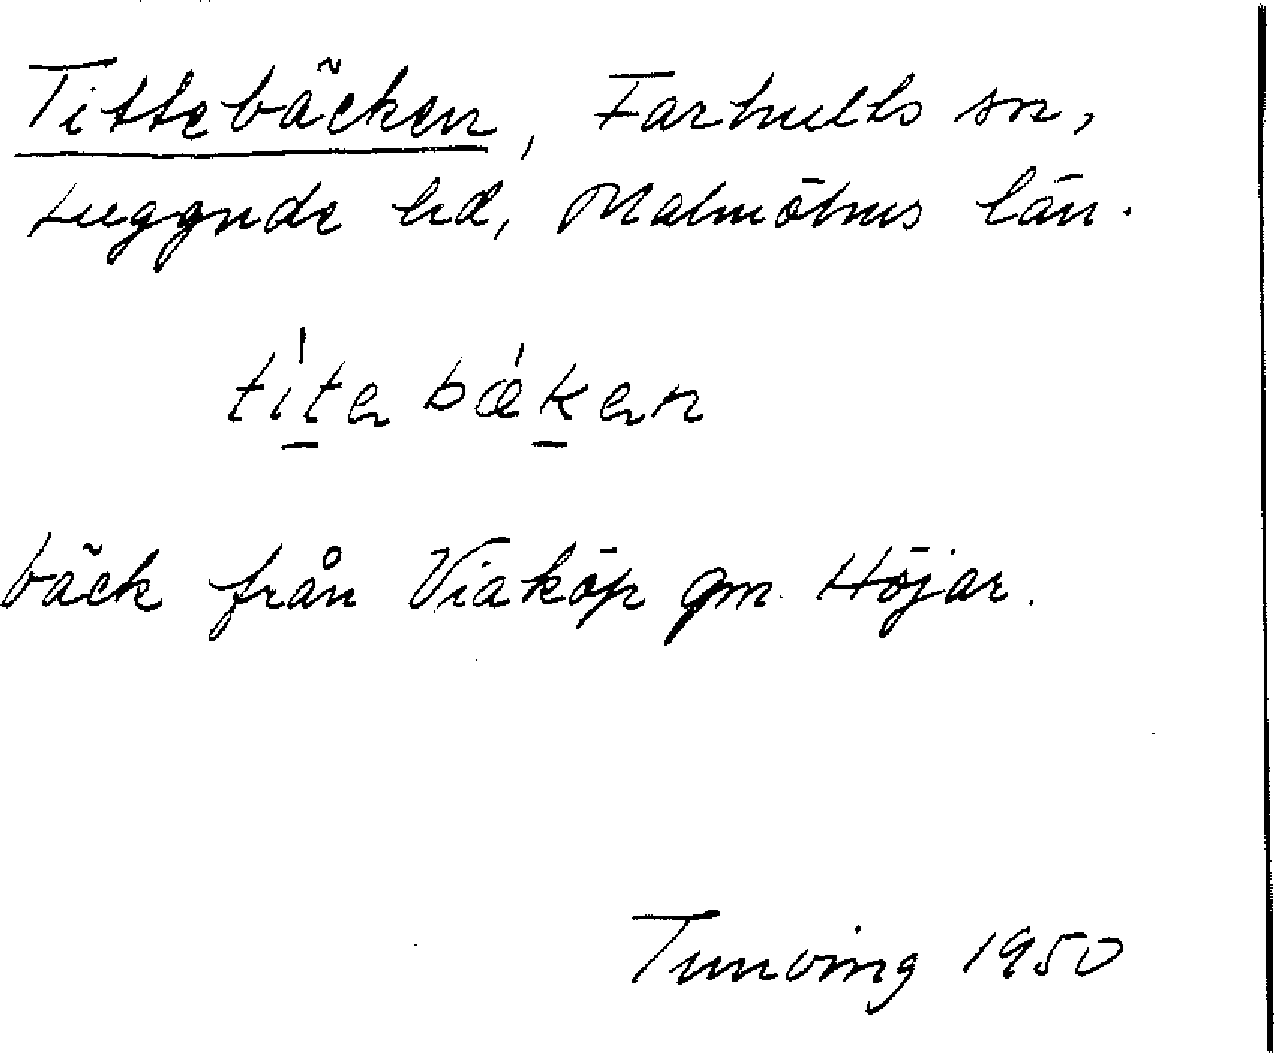 Tittebäcken, Farhults sn,
Luggude hd, Malmöhus län.
títa bǽkan
bäck från Viaköp gm. Höjar.
Tunving 1950